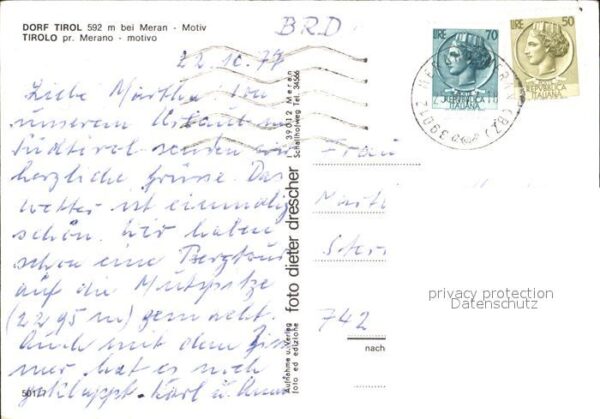 DORF TIROL 592 m bei Meran - Motiv
TIROLO pr. Merano - motivo
BRD
22.10.77
Liebe Martha! Von
unserem Urlaub in
Südtirol senden wir
herzliche Grüsse. Das
Wetter ist einmalig
schön. Wir haben
schon eine Bergtour
auf die Mutspitze
(2295 m) gemacht.
Auch mit dem Zim-
mer hat es noch
geklappt. Karl u.
501/1
Aufnahme u. Verlag
foto ed edizione
foto dieter drescher
I 39012 Meran
Schallhofweg Tel. 34566
LIRE 70
REPUBBLICA
ITALIANA
LIRE 50
REPUBBLICA
ITALIANA
(BZ)
39012
Frau
742
nach
privacy protection
Datenschutz